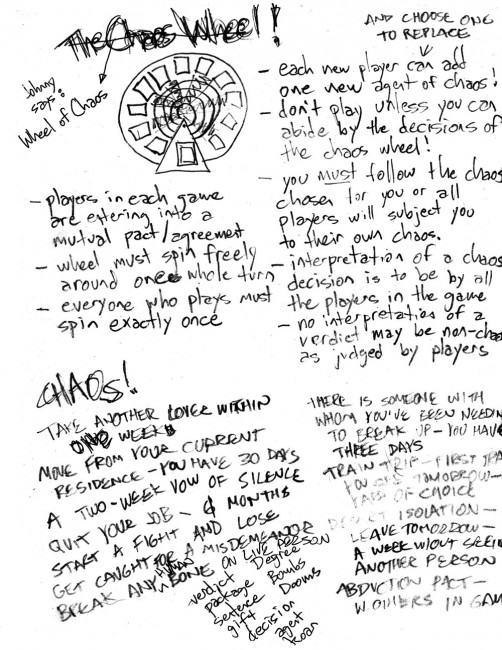 The Chaos Wheel!
Johnny
says:
Wheel of Chaos
- players in each game
are entering into a
mutual pact/agreement
- wheel must spin freely
around once whole turn
- everyone who plays must
spin exactly once
AND CHOOSE ONE
TO REPLACE
- each new player can add
one new agent of chaos!
- don't play unless you can
abide by the decisions of
the chaos wheel!
- you must follow the chaos
chosen for you or all
players will subject you
to their own chaos.
- interpretation of a chaos
decision is to be by all
the players in the game
- no interpretation of a
verdict may be non-chao
as judged by players
CHAOS!
TAKE ANOTHER LOVER WITHIN
ONE WEEK
MOVE FROM YOUR CURRENT
RESIDENCE - YOU HAVE 30 DAYS
A TWO-WEEK VOW OF SILENCE
QUIT YOUR JOB - 4 MONTHS
START A FIGHT AND LOSE
GET CAUGHT FOR A MISDEMEANOR
BREAK ANY HUMAN BONE ON LIVE PERSON
verdict Degree
package Bombs
sentence Dooms
gift decision
agent
Koan
THERE IS SOMEONE WITH
WHOM YOU'VE BEEN NEEDIN
TO BREAK UP - YOU HAVE
THREE DAYS
TRAIN TRIP - FIRST TRA
YOU SEE TOMORROW -
OF CHOICE
ISOLATION -
LEAVE TOMORROW -
A WEEK W/OUT SEEI
ANOTHER PERSON
ABDUCTION PACT -
W. OTHERS IN GAM